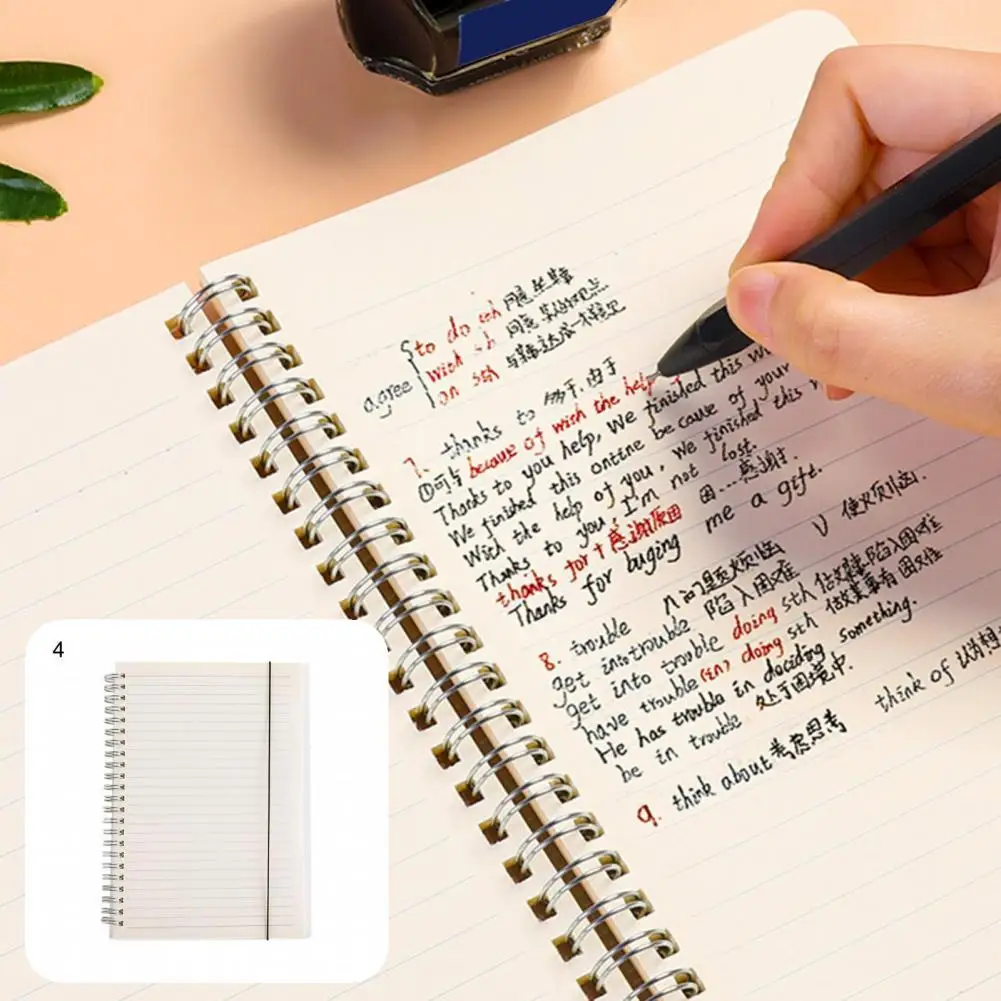 to do sth 同意去做
agree with sb 同意某人的观点
on sth 与某人达成一致意见
7. thanks to 由于
①同与 because of with the help
Thanks to you help, we finished this w
We finished this ontine because of your
With the help of you, we finished this
Thanks to you, I'm not lost.
thanks for 感谢原因 因...感谢
Thanks for buging me a gift.
8. trouble 问题烦恼 V 使烦恼
get into trouble 陷入困难
get into trouble doing sth 做某事陷入困难
have trouble (in) doing sth 做某事有困难
He has trouble in deciding something.
be in trouble 处于困境中.
9. think about 考虑思考 think of 认为想
4